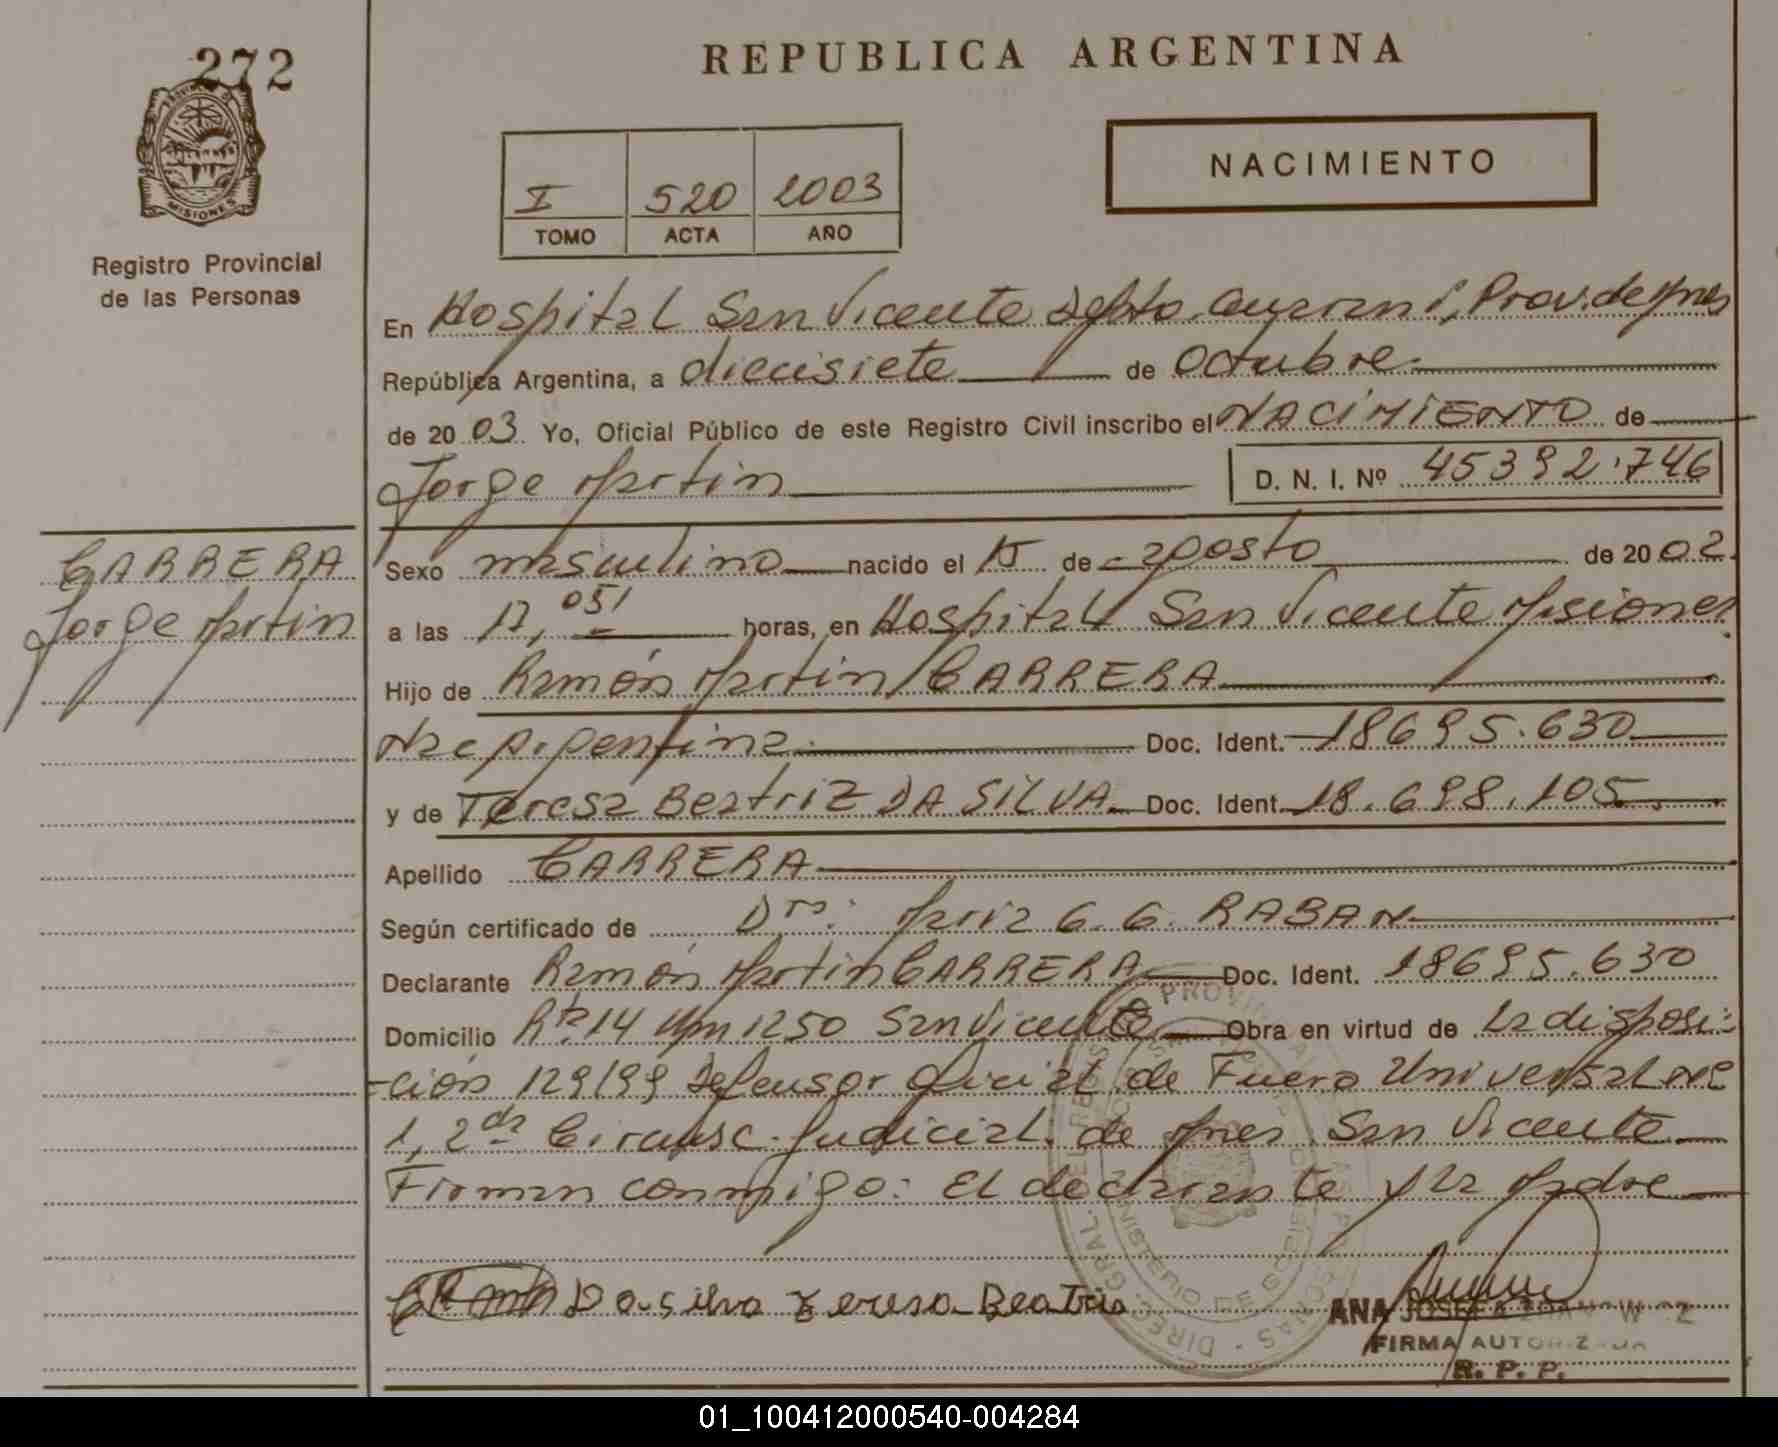 272
REPUBLICA ARGENTINA
NACIMIENTO
I 520 2003
TOMO ACTA AÑO
PROVINCIA DE
MISIONES
Registro Provincial
de las Personas
En Hospital San Vicente Depto. Guarani, Prov. de Mnes
República Argentina, a diecisiete de Octubre
de 2003 Yo, Oficial Público de este Registro Civil inscribo el NACIMIENTO de
Jorge Martin D. N. I. Nº 45392.746
CARRERA
Jorge Martin
Sexo masculino nacido el 15 de agosto de 2002
a las horas, en Hospital San Vicente Misiones
Hijo de Ramón Martin CARRERA
Nac Argentina Doc. Ident. 18695.630
y de Teresa Beatriz DA SILVA Doc. Ident. 18.698.105
Apellido CARRERA
Según certificado de Dra: Maria G. G. RABAN
Declarante Ramón Martin CARRERA Doc. Ident. 18695.630
Domicilio Rta 14 Km 1250 San Vicente Obra en virtud de la disposi-
-ción 129/99 Defensor Oficial de Fuero Universal Nº
1, 2da Circunsc. Judicial de Mnes San Vicente
Firman conmigo: El declarante y la Madre
Da silva Teresa Beatris
ANA JOSEFA
FIRMA AUTORIZADA
R. P. P.
01_100412000540-004284